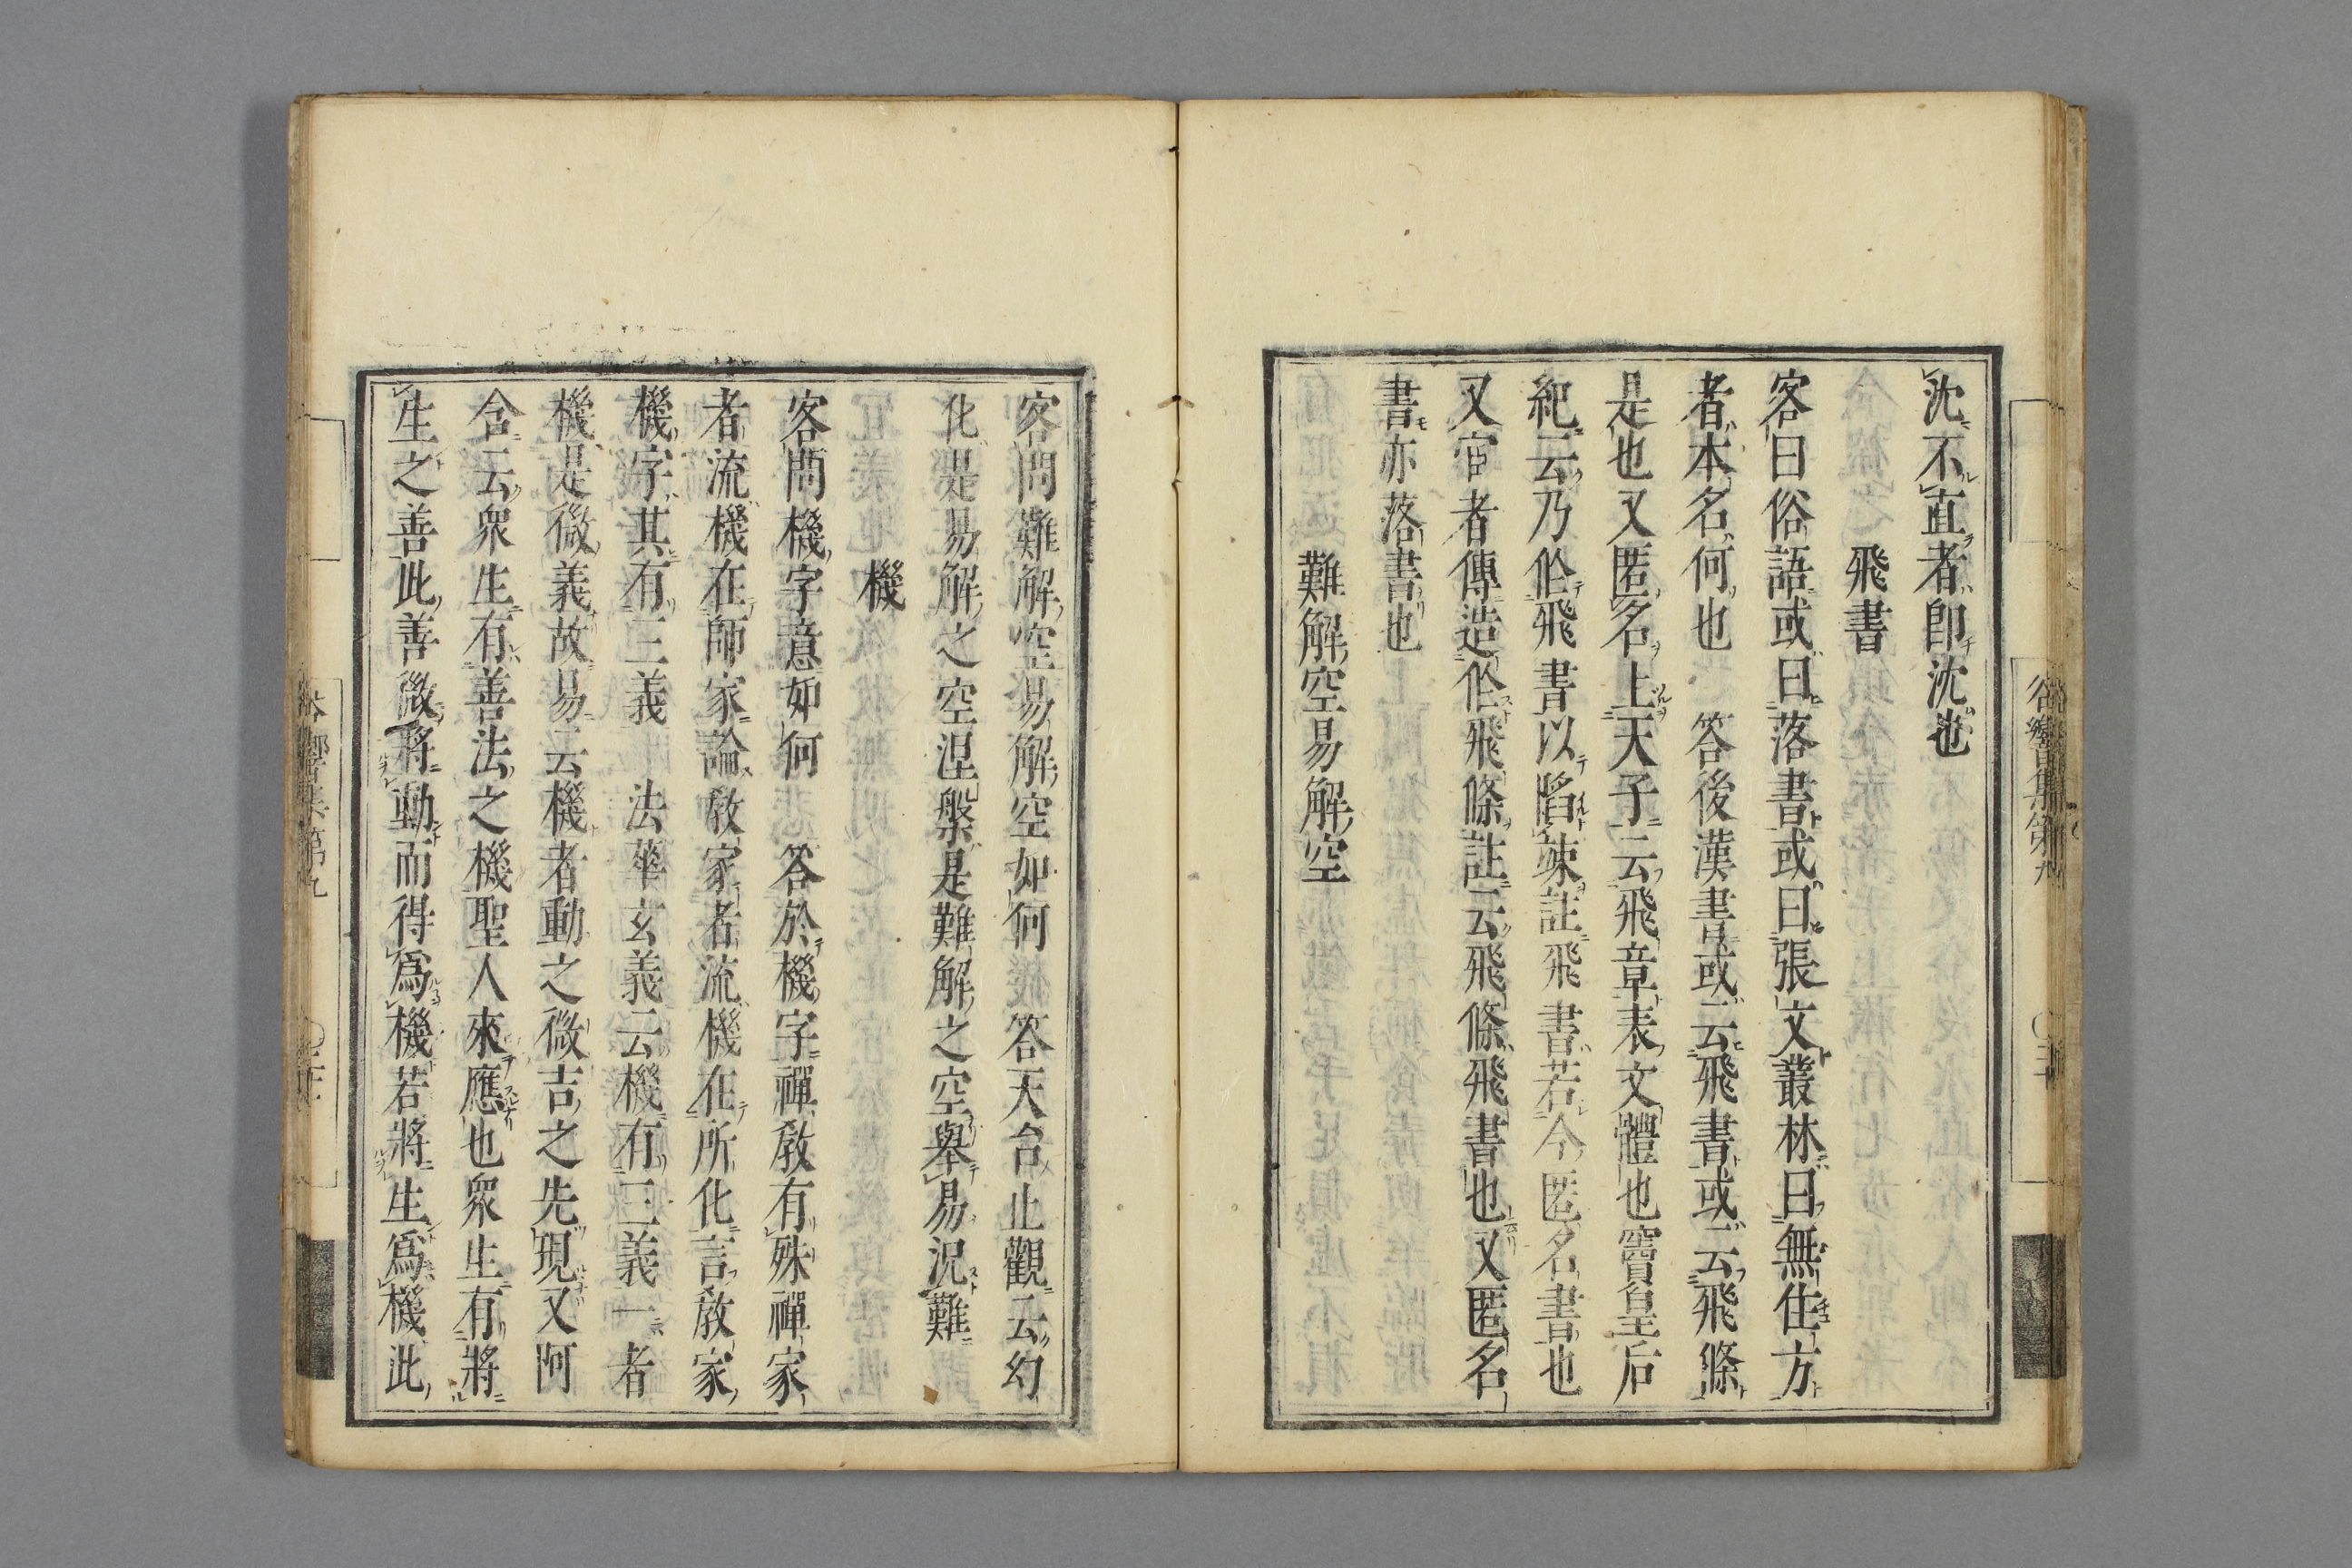 沈不直者即沈也
飛書
客曰俗語或曰落書或曰張文叢林曰無住方
者本名何也　答後漢書或云飛書或云飛條
是也又匿名上天子云飛章表文體也竇皇后
紀云乃作飛書以陷竦註飛書若今匿名書也
又宦者傳造作飛條註云飛條飛書也又匿名
書亦落書也
難解空易解空
客問難解空易解空如何　答天台止觀云幻
化是易解之空涅槃是難解之空舉易況難
機
客問機字意如何　答於機字禪教有殊禪家
者流機在師家論教家者流機在所化言教家
機字其有三義　法華玄義云機有三義一者
機是微義故易云機者動之微吉之先現又阿
含云眾生有善法之機聖人來應也眾生有將
生之善此善微將動而得爲機若將生爲機此
谷響集第九
谷響集第九